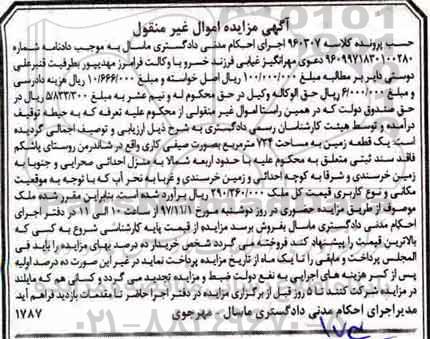 آگهی مزایده اموال غیر منقول
حسب پرونده کلاسه ۹۶۰۳۰۷ اجرای احکام مدنی دادگستری ماسال به موجب دادنامه شماره
۹۶۰۹۹۷۱۸۳۰۱۰۰۲۸۰ دعوی مهرانگیز غیابی فرزند خسرو با وکالت فرامرز مهدیپور بطرفیت قنبرعلی
دوستی دایر بر مطالبه مبلغ ۱۰۰/۰۰۰/۰۰۰ ریال اصل خواسته و مبلغ ۱۰/۶۶۶/۰۰۰ ریال هزینه دادرسی
و مبلغ ۶/۰۰۰/۰۰۰ ریال حق الوکاله وکیل در حق محکوم له و نیم عشر به مبلغ ۵/۸۳۳/۳۰۰ ریال در
حق صندوق دولت که در همین راستا اموال غیر منقولی از محکوم علیه تعرفه که به حیطه توقیف
درآمده و توسط هیئت کارشناسان رسمی دادگستری به شرح ذیل ارزیابی و توصیف اجمالی گردیده
است. یک قطعه زمین به مساحت ۷۲۴ مترمربع بصورت صیفی کاری واقع در شاندرمن روستای پاشکم
فاقد سند ثبتی متعلق به محکوم علیه با حدود اربعه شمالا به منزل احداثی صحرایی و جنوبا به
زمین خرسندی و شرقا به کوچه احداثی و زمین خرسندی و غربا به نحر آب که با توجه به موقعیت
مکانی و نوع کاربری قیمت کل ملک ۲۹۰/۳۶۰/۰۰۰ ریال برآورد شده است. بنابراین مقرر شده ملک
موصوف از طریق مزایده حضوری در روز دوشنبه مورخ ۹۷/۱۱/۱ از ساعت ۱۰ الی ۱۱ در دفتر اجرای
احکام مدنی دادگستری ماسال بفروش برسد مزایده از قیمت پایه کارشناسی شروع به کسی که
بالاترین قیمت را پیشنهاد کند فروخته می گردد شخص خریدار ده درصد بهای مزایده را باید فی
المجلس پرداخت و مابقی را تا یک ماه از تاریخ مزایده پرداخت نماید در غیر این صورت ده درصد اولیه
پس از کسر هزینه های اجرایی به نفع دولت ضبط و مزایده تجدید می گردد و کسانی هم که مایلند
در مزایده شرکت کنند تا ۵ روز قبل از برگزاری مزایده در دفتر اجرا حاضر تا مقدمات بازدید فراهم آید.
مدیر اجرای احکام مدنی دادگستری ماسال - مهرجوی ۱۷۸۷